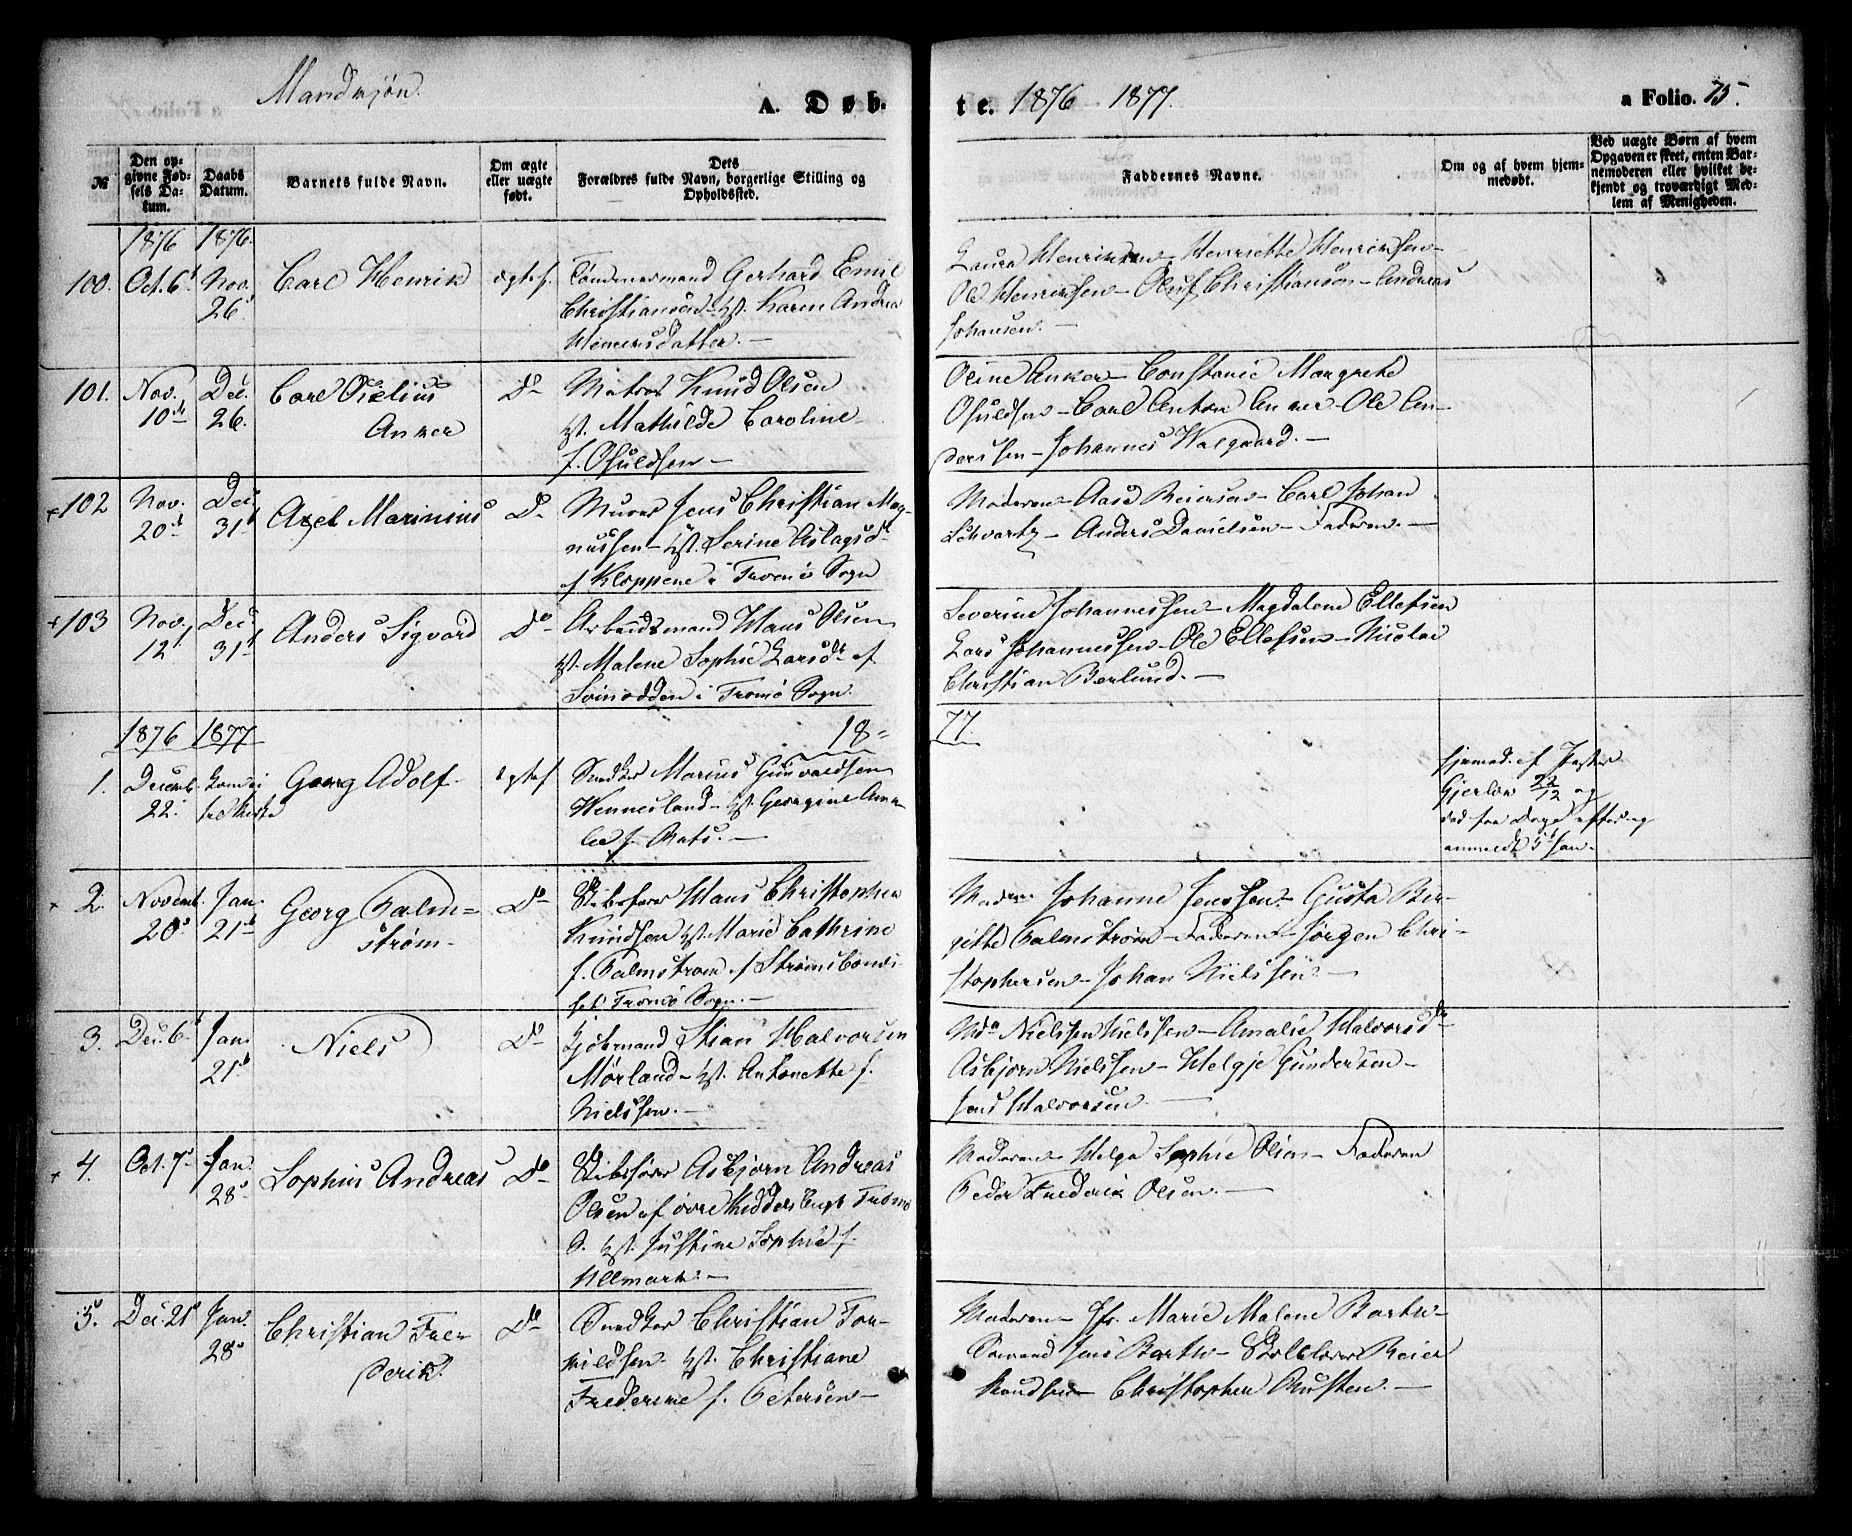 Mandkjøn.
A. Døb-
te. 1876 - 1877.
a Folio. 75.
№
Den op-
givne Fød-
sels Da-
tum.
Daabs
Datum.
Barnets fulde Navn.
Om ægte
eller uægte
født.
Dets
Forældres fulde Navn, borgerlige Stilling og
Opholdssted.
Faddernes Navne.
Om og af hvem hjem-
medøbt.
Ved uægte Børn af hvem
Opgaven er skeet, enten Bar-
nemoderen eller hvilket be-
kjendt og troværdigt Med-
lem af Menigheden.
1876 1876.
100. Oct. 6 Nov. 26 Carl Henrik ægtef. Tømmermand Gerhard Emil
Christiansen Karen Andrea
Laura Henriksen - Henriette Henriksen -
Ole Henriksen - Oluf Christiansen - Andreas
Johansen. -
101. Nov. 10 Dec. 26. Carl
Anker
D Matros Knud Olsen
Mathilde Caroline
f. Osuldsen -
Oline Anker - Constance Margrete
Osuldsen - Carl Anton Anker - Ole An-
derssen - Johannes
+102 Nov. 20 Dec 31 Axel Marinius D. Murer Jens Christian Mag-
nussen - Serine Aslagsd
af Kloppene i Tromø Sogn
Moderen - Aase Reiersen - Carl Johan
Schvartz - Anders Danielsen - Faderen. -
+103 Nov. 12 Dec 31 Anders Sigvard D Arbeidsmand Hans Olsen
Malene Sophie Larsd af
i Tromø Sogn.
Severine Johannessen - Magdalene Ellefsen
Lars Johannessen - Ole Ellefsen - Nicolai
Christian Berlund. -
1876 1877
18-
77.
1. Decemb. 22. Georg Adolf ægtef Snedker Marius Gunvaldsen
Hennesland - Georgine Ama-
lie f. Aats. -
hjemd. af Pastor
Gjerløw 22/12 og
død faa Dage efter og
anmeldt 5 Jan.
+ 2. Novemb. 20 Jan. 21 Georg Palm=
strøm -
D Skibsfører Hans Christopher
Knudsen Marie Cathrine
f. Palmstrøm af Strømsboni-
set Tromø Sogn. -
Moderen Johanne Jenssen - Gusta Bir-
gitte Palmstrøm - Faderen - Jørgen Chri-
stophersen - Johan Nielsen -
3. Dec. 6 Jan. 21 Niels D Stian Halvorsen
Mørland - Antonette f.
Nielssen. -
Nielssen - Amalie Halvorsd
Asbjørn Nielssen - Helgje Gundersen -
Jens Halvorsen. -
+ 4. Oct. 7 Jan. 28 Sophius Andreas D Skibsfører Asbjørn Andreas
Olsen af Tromø
S. Justine Sophie f.
Ullmark. -
Moderen - Helga Sophie Olsen - Faderen
Peder Frederik Olsen. -
5. Dec. 21 Jan. 28 Christian Fre-
derik.
D Snedker Christian Tor-
kildsen. Christiane
Frederikke f. Petersen -
Moderen - Marie Malene Barth -
Sømand Jens Barth - Reier
Knudsen Christopher Austen. -